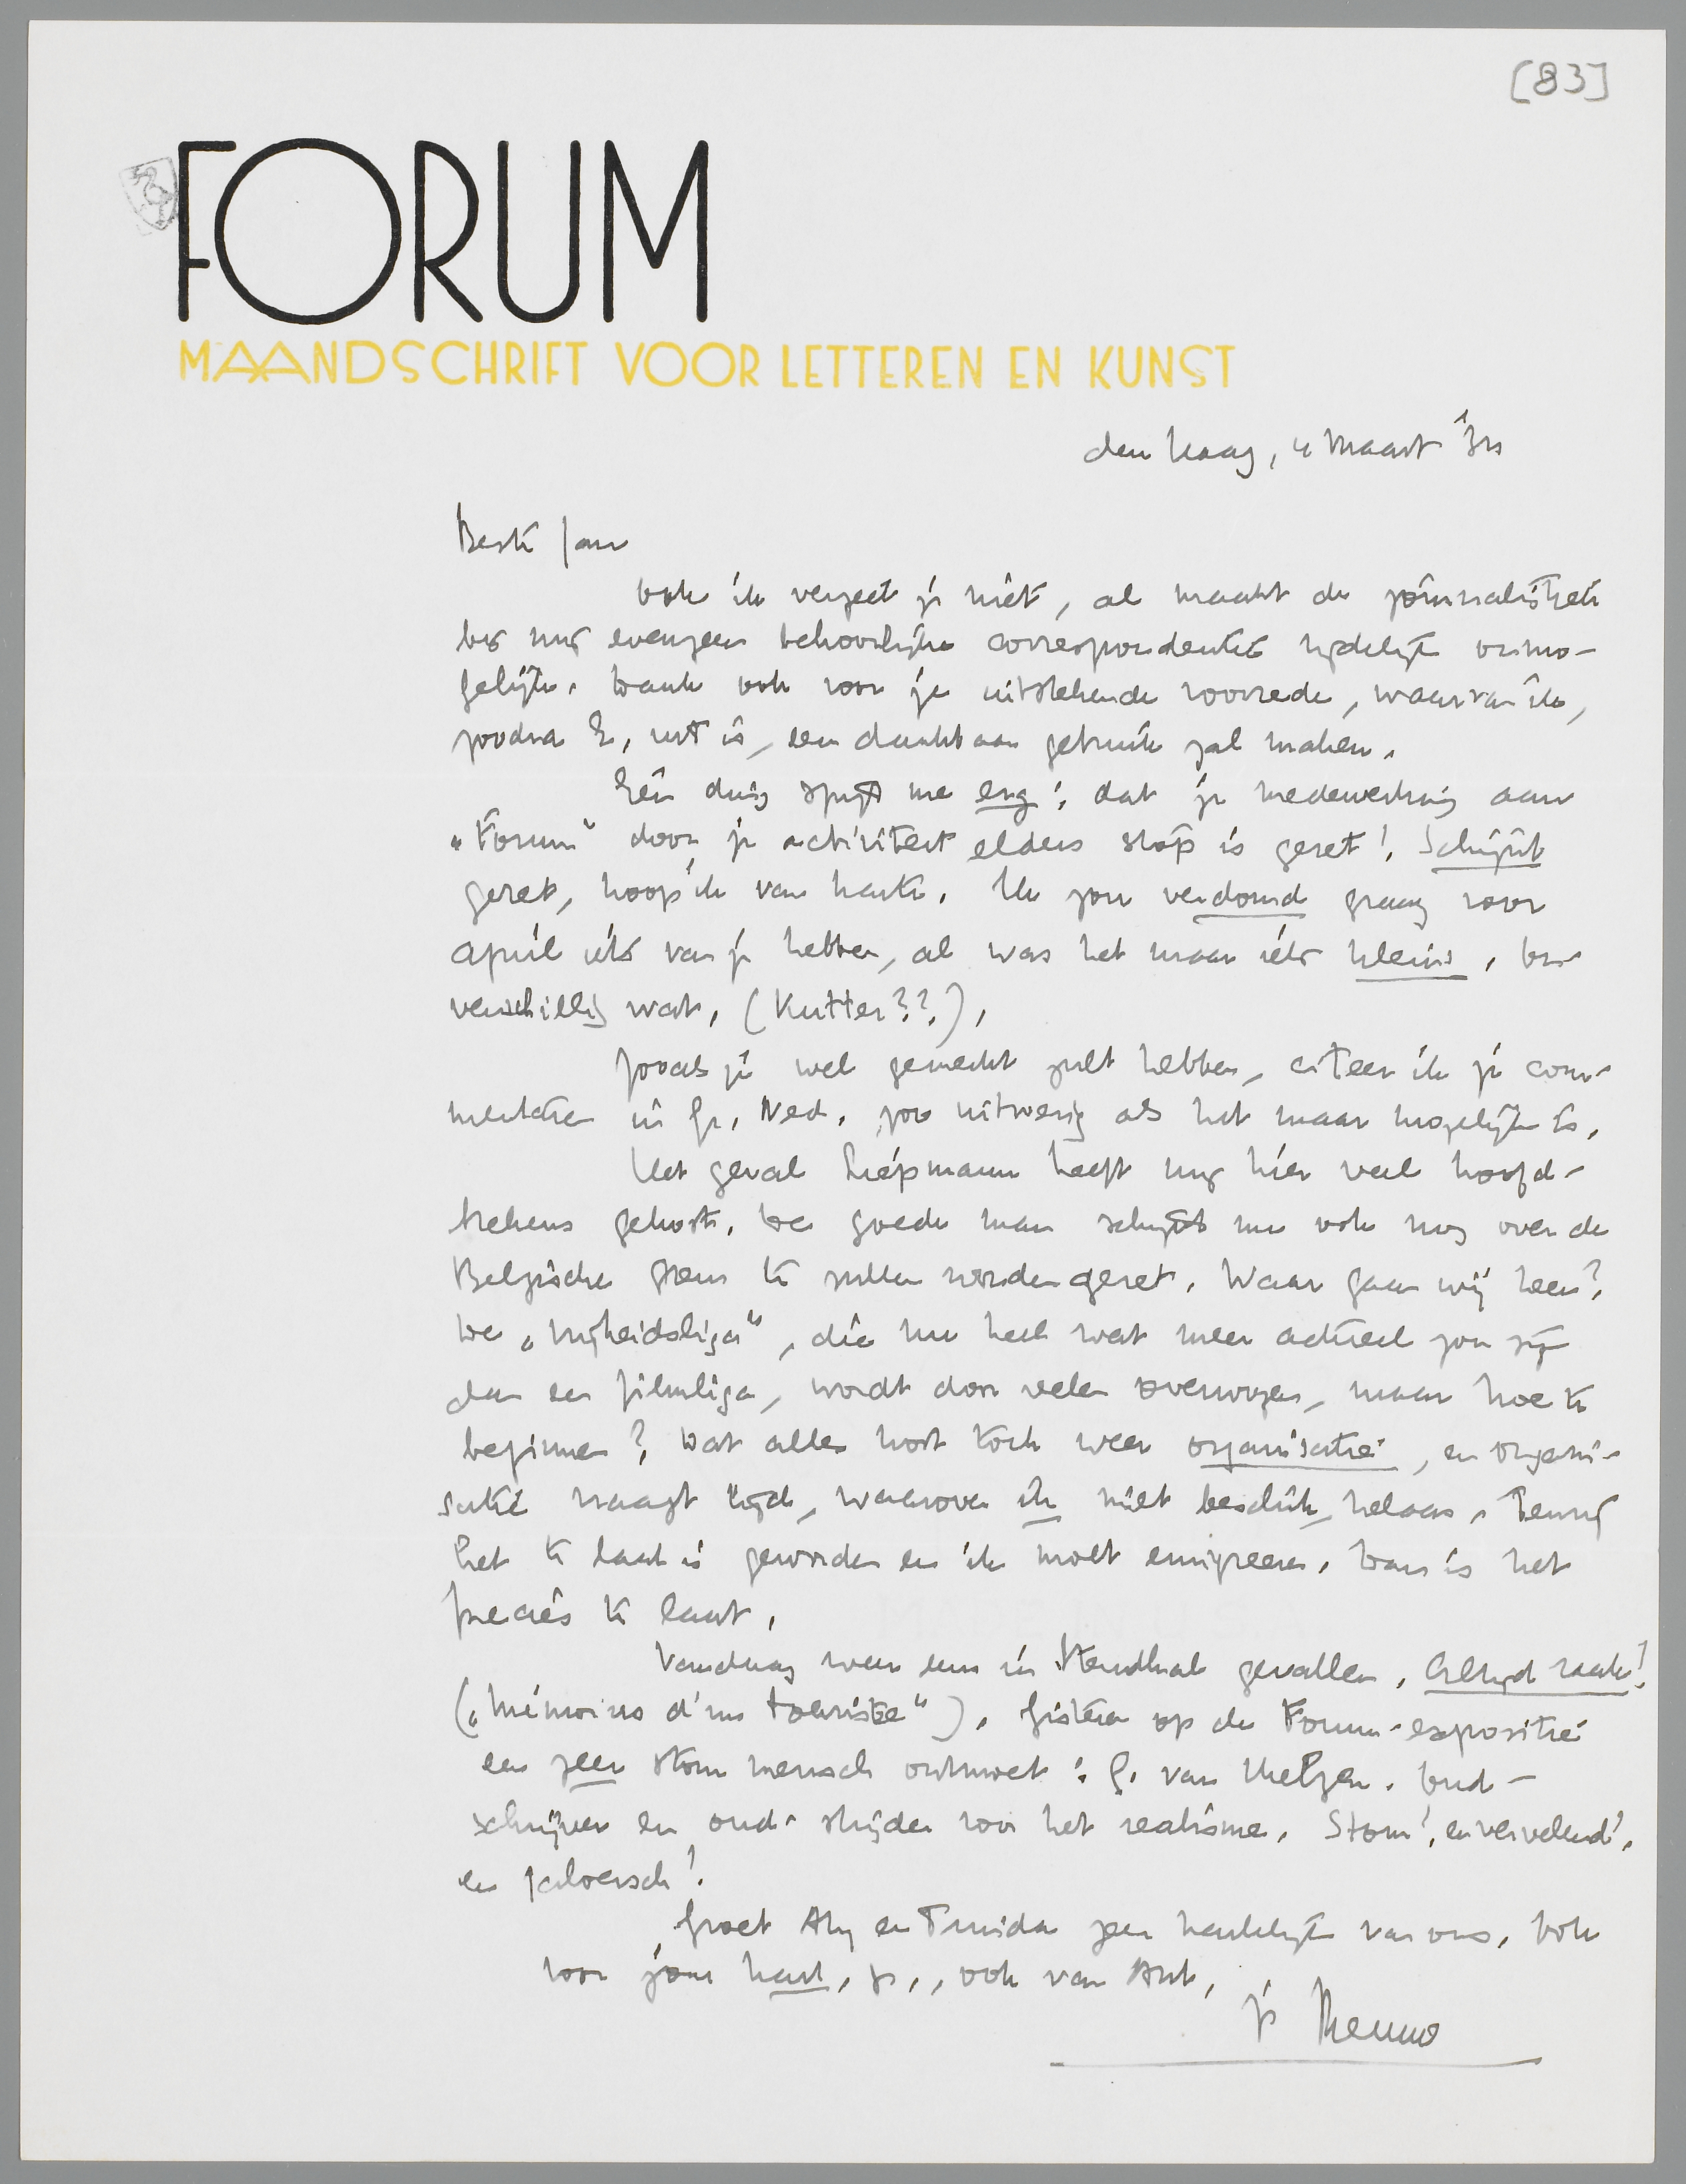 [83]
FORUM
MAANDSCHRIFT VOOR LETTEREN EN KUNST
den Haag, 4 Maart '34
Beste Jan
Ook ik vergeet je niet, al maakt de journalistiek
bij mij evengoed behoorlijke correspondentie tijdelijk onmo-
gelijk. Dank ook voor je uitstekende voorrede, waarvan ik,
zoodra E. uit is, een dankbaar gebruik zal maken.
Eén ding spijt me erg: dat je medewerking aan
"Forum" door je activiteit elders stop is gezet! Schijnt
gezet, hoop ik van harte. Ik zou verdomd graag voor
April iets van je hebben, al was het maar iets kleins, on-
verschillig wat. (Kutter??).
Zooals je wel gemerkt zult hebben, citeer ik je com-
mentaren in Gr. Ned. zoo uitvoerig als het maar mogelijk is.
Het geval Liepmann heeft mij hier veel hoofd-
brekens gekost. De goede man schijnt nu ook nog over de
Belgische grens te zullen worden gezet. Waar gaan wij heen?
De "vrijheidsliga", die nu heel wat meer actueel zou zijn
dan een filmliga, wordt door velen overwogen, maar hoe te
beginnen? Dat alles kost toch weer organisatie, en organi-
satie vraagt tijd, waarover ik niet beschik, helaas. Tenzij
het te laat is geworden en ik moet emigreeren. Dan is het
precies te laat.
Vandaag weer eens in Stendhal gevallen. Altijd raak!
("Mémoires d'un touriste"). Gisteren op de Forum-expositie
een zeer stom mensch ontmoet: G. van Hulzen. Oud-
schrijver en oud-strijder voor het realisme. Stom!, en vervelend!,
en jaloersch!
Groet Any en Truida zeer hartelijk van ons. Ook
voor jou hart. gr., ook van Ant,
je Menno